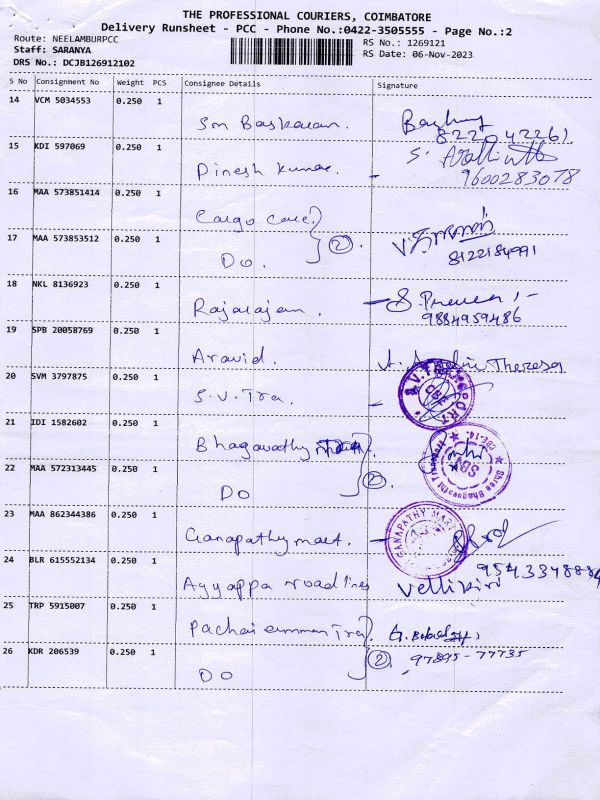 THE PROFESSIONAL COURIERS, COIMBATORE
Delivery Runsheet - PCC - Phone No.:0422-3505555 - Page No.:2
Route: NEELAMBURPCC
Staff: SARANYA
DRS No.: DCJB126912102
RS No.: 1269121
RS Date: 06-Nov-2023
S No Consignment No Weight PCS Consignee Details Signature
14 VCM 5034553 0.250 1
Sm Baskaran.
15 KDI 597069 0.250 1
Dinesh Kumar.
9600283078
16 MAA 573851414 0.250 1
Cargo care
17 MAA 573853512 0.250 1
Do. (2).
8122184991
18 NKL 8136923 0.250 1
Rajarajan.
9884959486
19 SPB 20058769 0.250 1
Aravid. Theresa
20 SVM 3797875 0.250 1
S.V. Tra.
S.V. TRANSPORT
CBE
21 IDI 1582602 0.250 1
Bhagavathy
22 MAA 572313445 0.250 1
DO (2).
Shree Bhagavathi
CBE-14.
23 MAA 862344386 0.250 1
Ganapathy mart.
GANAPATHY MART
24 BLR 615552134 0.250 1
Ayyappa road lines Vellikiri
25 TRP 5915007 0.250 1
Pachaiamman Tra.
26 KDR 206539 0.250 1
DO (2).
97895-77735